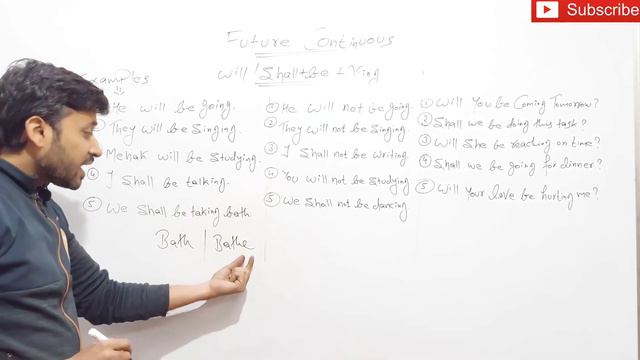 Subscribe
Future Continuous
Will / Shall + be + Ving
Examples
He will be going.
They will be Singing.
Mehak will be Studying.
④ I Shall be talking.
⑤ We Shall be taking bath.
Bath | Bathe
① He will not be going.
② They will not be Singing.
③ I Shall not be writing.
④ You will not be Studying
⑤ We Shall not be dancing
① Will You be Coming Tomorrow?
② Shall we be doing this task?
③ Will She be reaching on time?
④ Shall we be going for dinner?
⑤ Will Your love be hurting me?